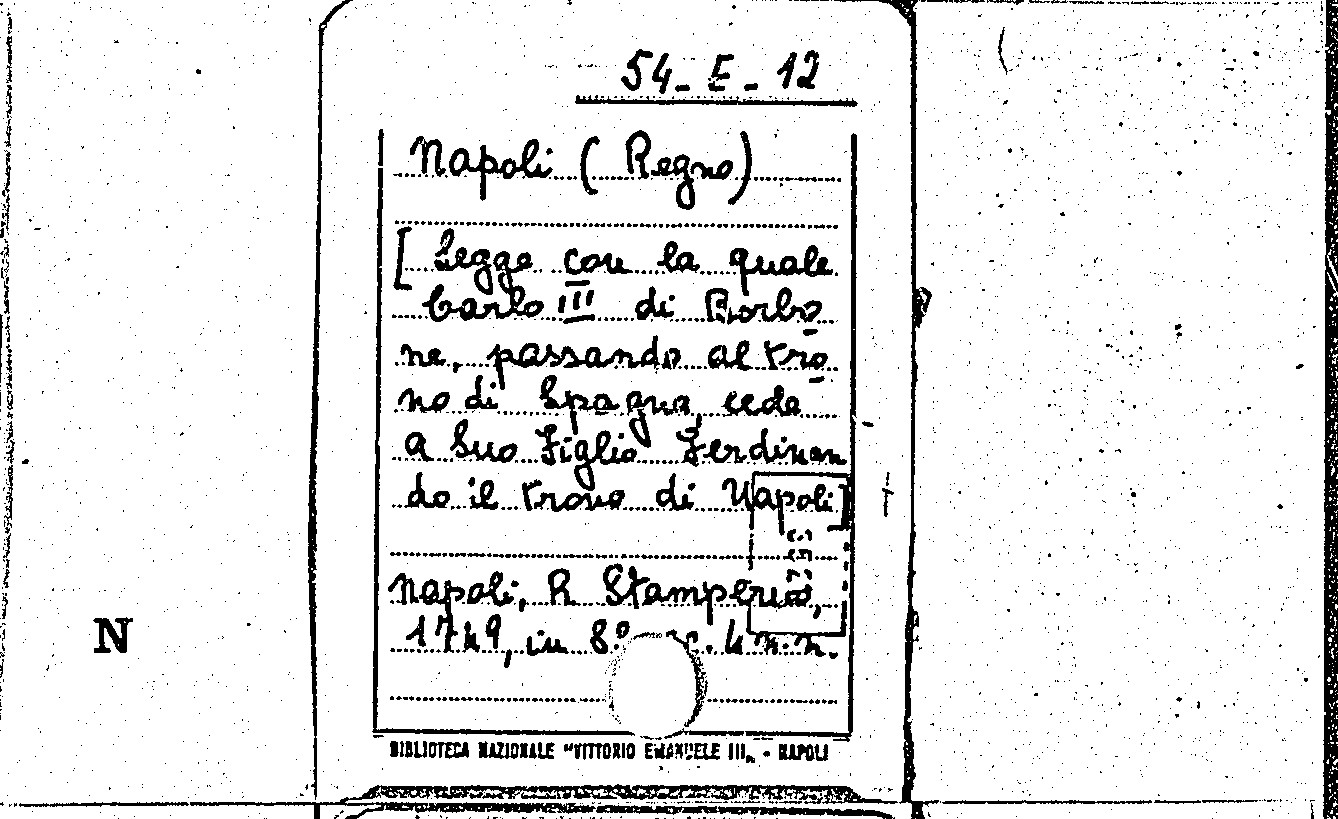 54-E-12
Napoli (Regno)
[Legge con la quale
Carlo III di Borbo
ne, passando al tro
no di Spagna, cede
a suo Figlio Ferdinan
do il trono di Napoli]
Napoli, R Stamperia,
1749, in 8° c. 4 n.n.
N
BIBLIOTECA NAZIONALE "VITTORIO EMANUELE III„ - NAPOLI